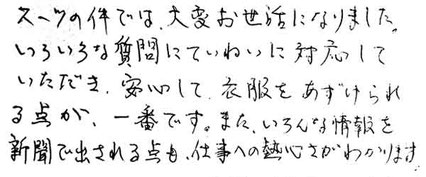 スーツの件では、大変お世話になりました。
いろいろな質問にていねいに対応して
いただき、安心して、衣服をあずけられ
る点が、一番です。また、いろんな情報を
新聞で出される点も、仕事への熱心さがわかります